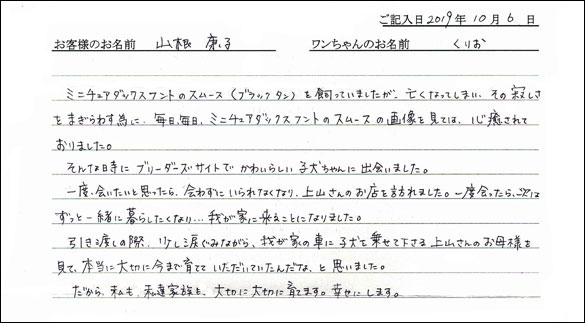 ご記入日 2019年 10月 6日
お客様のお名前 山根 康る ワンちゃんのお名前 くりお
ミニチュアダックスフントのスムース(ブラックタン)を飼っていましたが、亡くなってしまい、その寂しさ
をまぎらわす為に、毎日、毎日、ミニチュアダックスフントのスムースの画像を見ては、心癒されて
おりました。
そんな日時にブリーダーズサイトでかわいらしい子犬ちゃんに出会いました。
一度、会いたいと思ったら、会わずにいられなくなり、上山さんのお店を訪れました。一度会ったら、次は
ずっと一緒に暮らしたくなり…我が家に迎えることになりました。
引き渡しの際、少し涙ぐみながら、我が家の車に子犬を乗せて下さる上山さんのお母様を
見て、本当に大切に今まで育てていただいていたんだな、と思いました。
だから、私も、私達家族も、大切に大切に育てます。幸せにします。